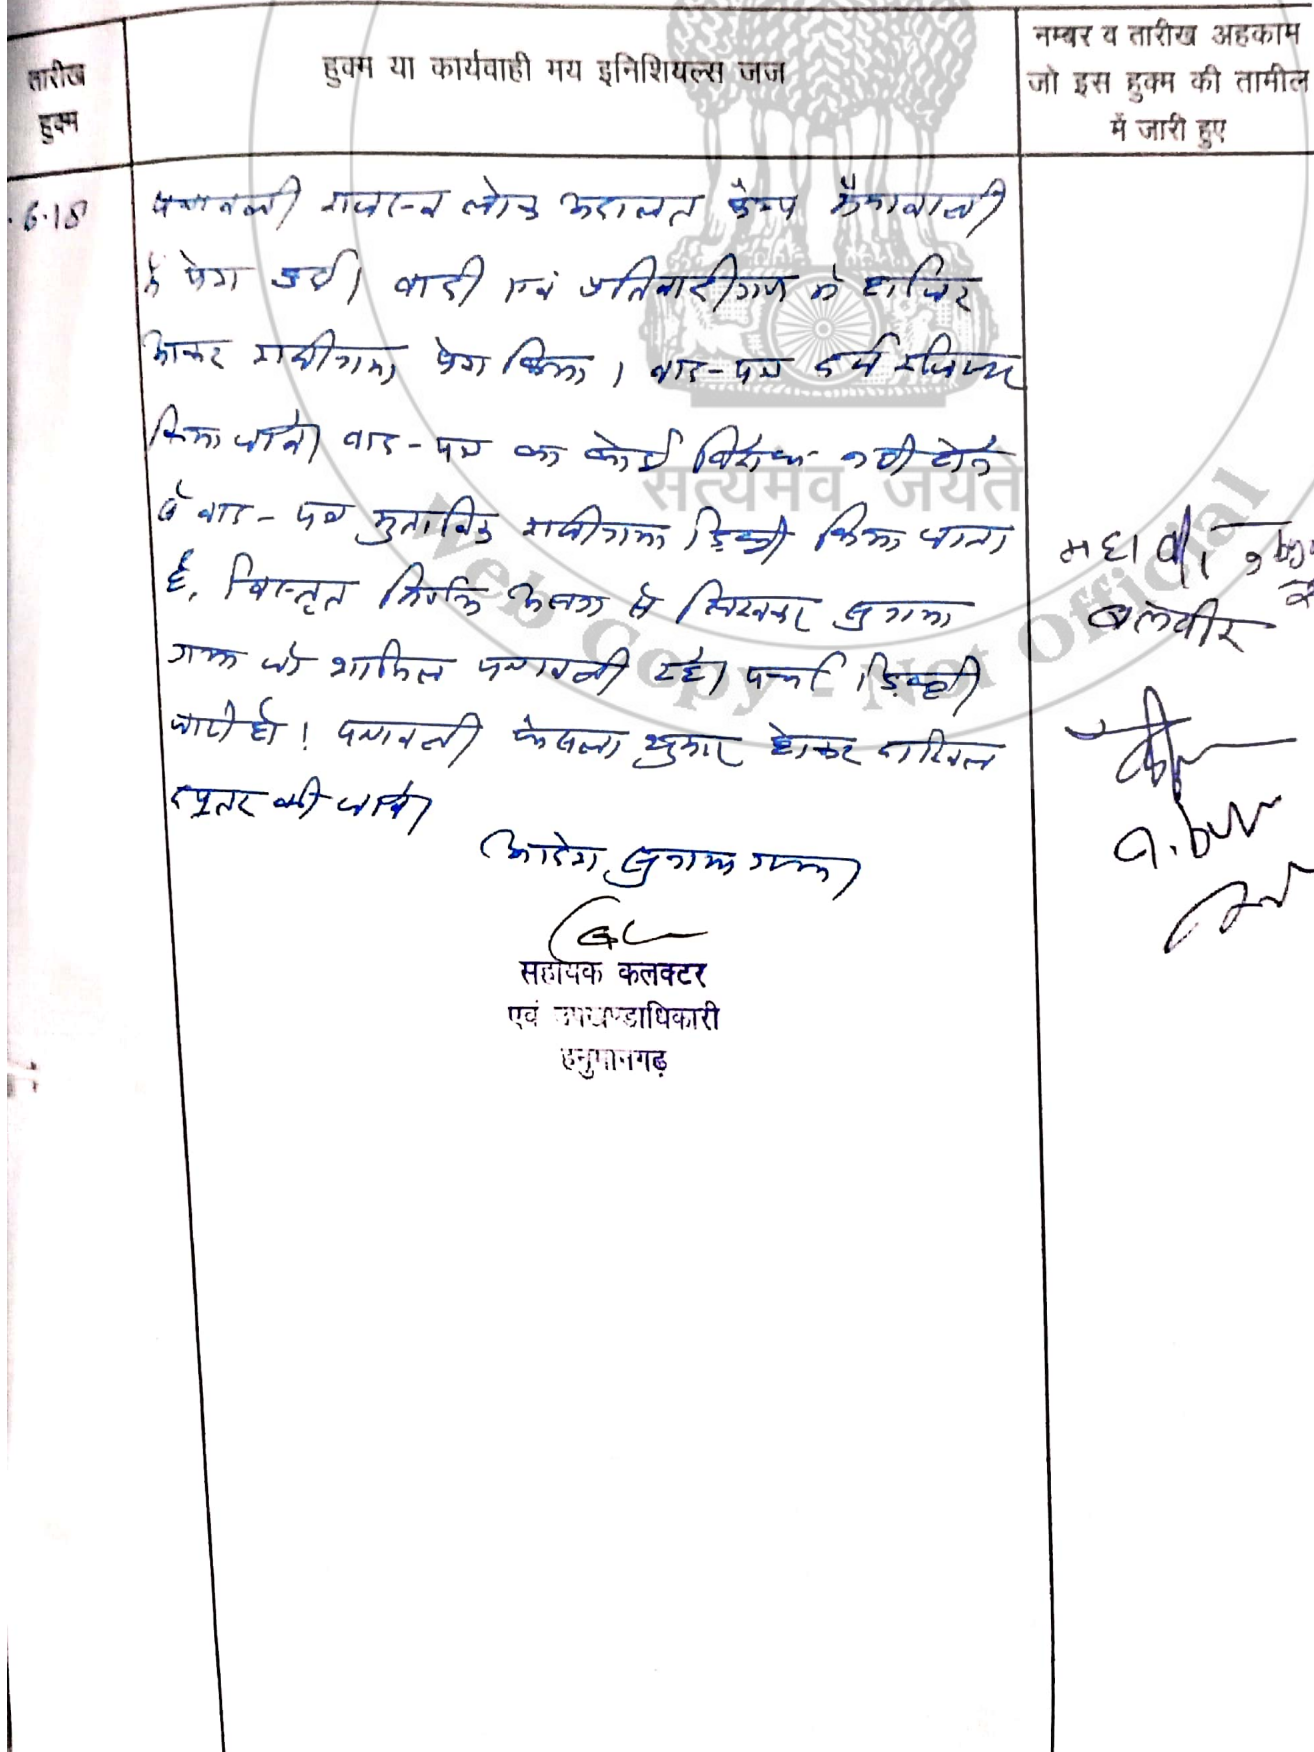 तारीख
हुक्म
हुक्म या कार्यवाही मय इनिशियल्स जज
नम्बर व तारीख अहकाम
जो इस हुक्म की तामील
में जारी हुए
.6.18
पत्रावली राजस्व लोक अदालत कैम्प
में पेश हुई। वादी एवं प्रतिवादीगण ने हाजिर
आकर राजीनामा पेश किया। वाद-पत्र दर्ज रजिस्टर
किया जावे। वाद-पत्र का कोई विरोध नहीं होने
से वाद-पत्र मुताबिक राजीनामा डिक्री किया जाता
है, विस्तृत निर्णय अलग से लिखकर सुनाया
गया जो शामिल पत्रावली रहे। पर्चा डिक्री
जारी हो। पत्रावली फैसला शुमार होकर दाखिल
दफ्तर की जावे।
आदेश सुनाया गया।
सहायक कलक्टर
एवं उपखण्डाधिकारी
हनुमानगढ़
बलवीर
सत्यमेव जयते
Web Copy - Not Official